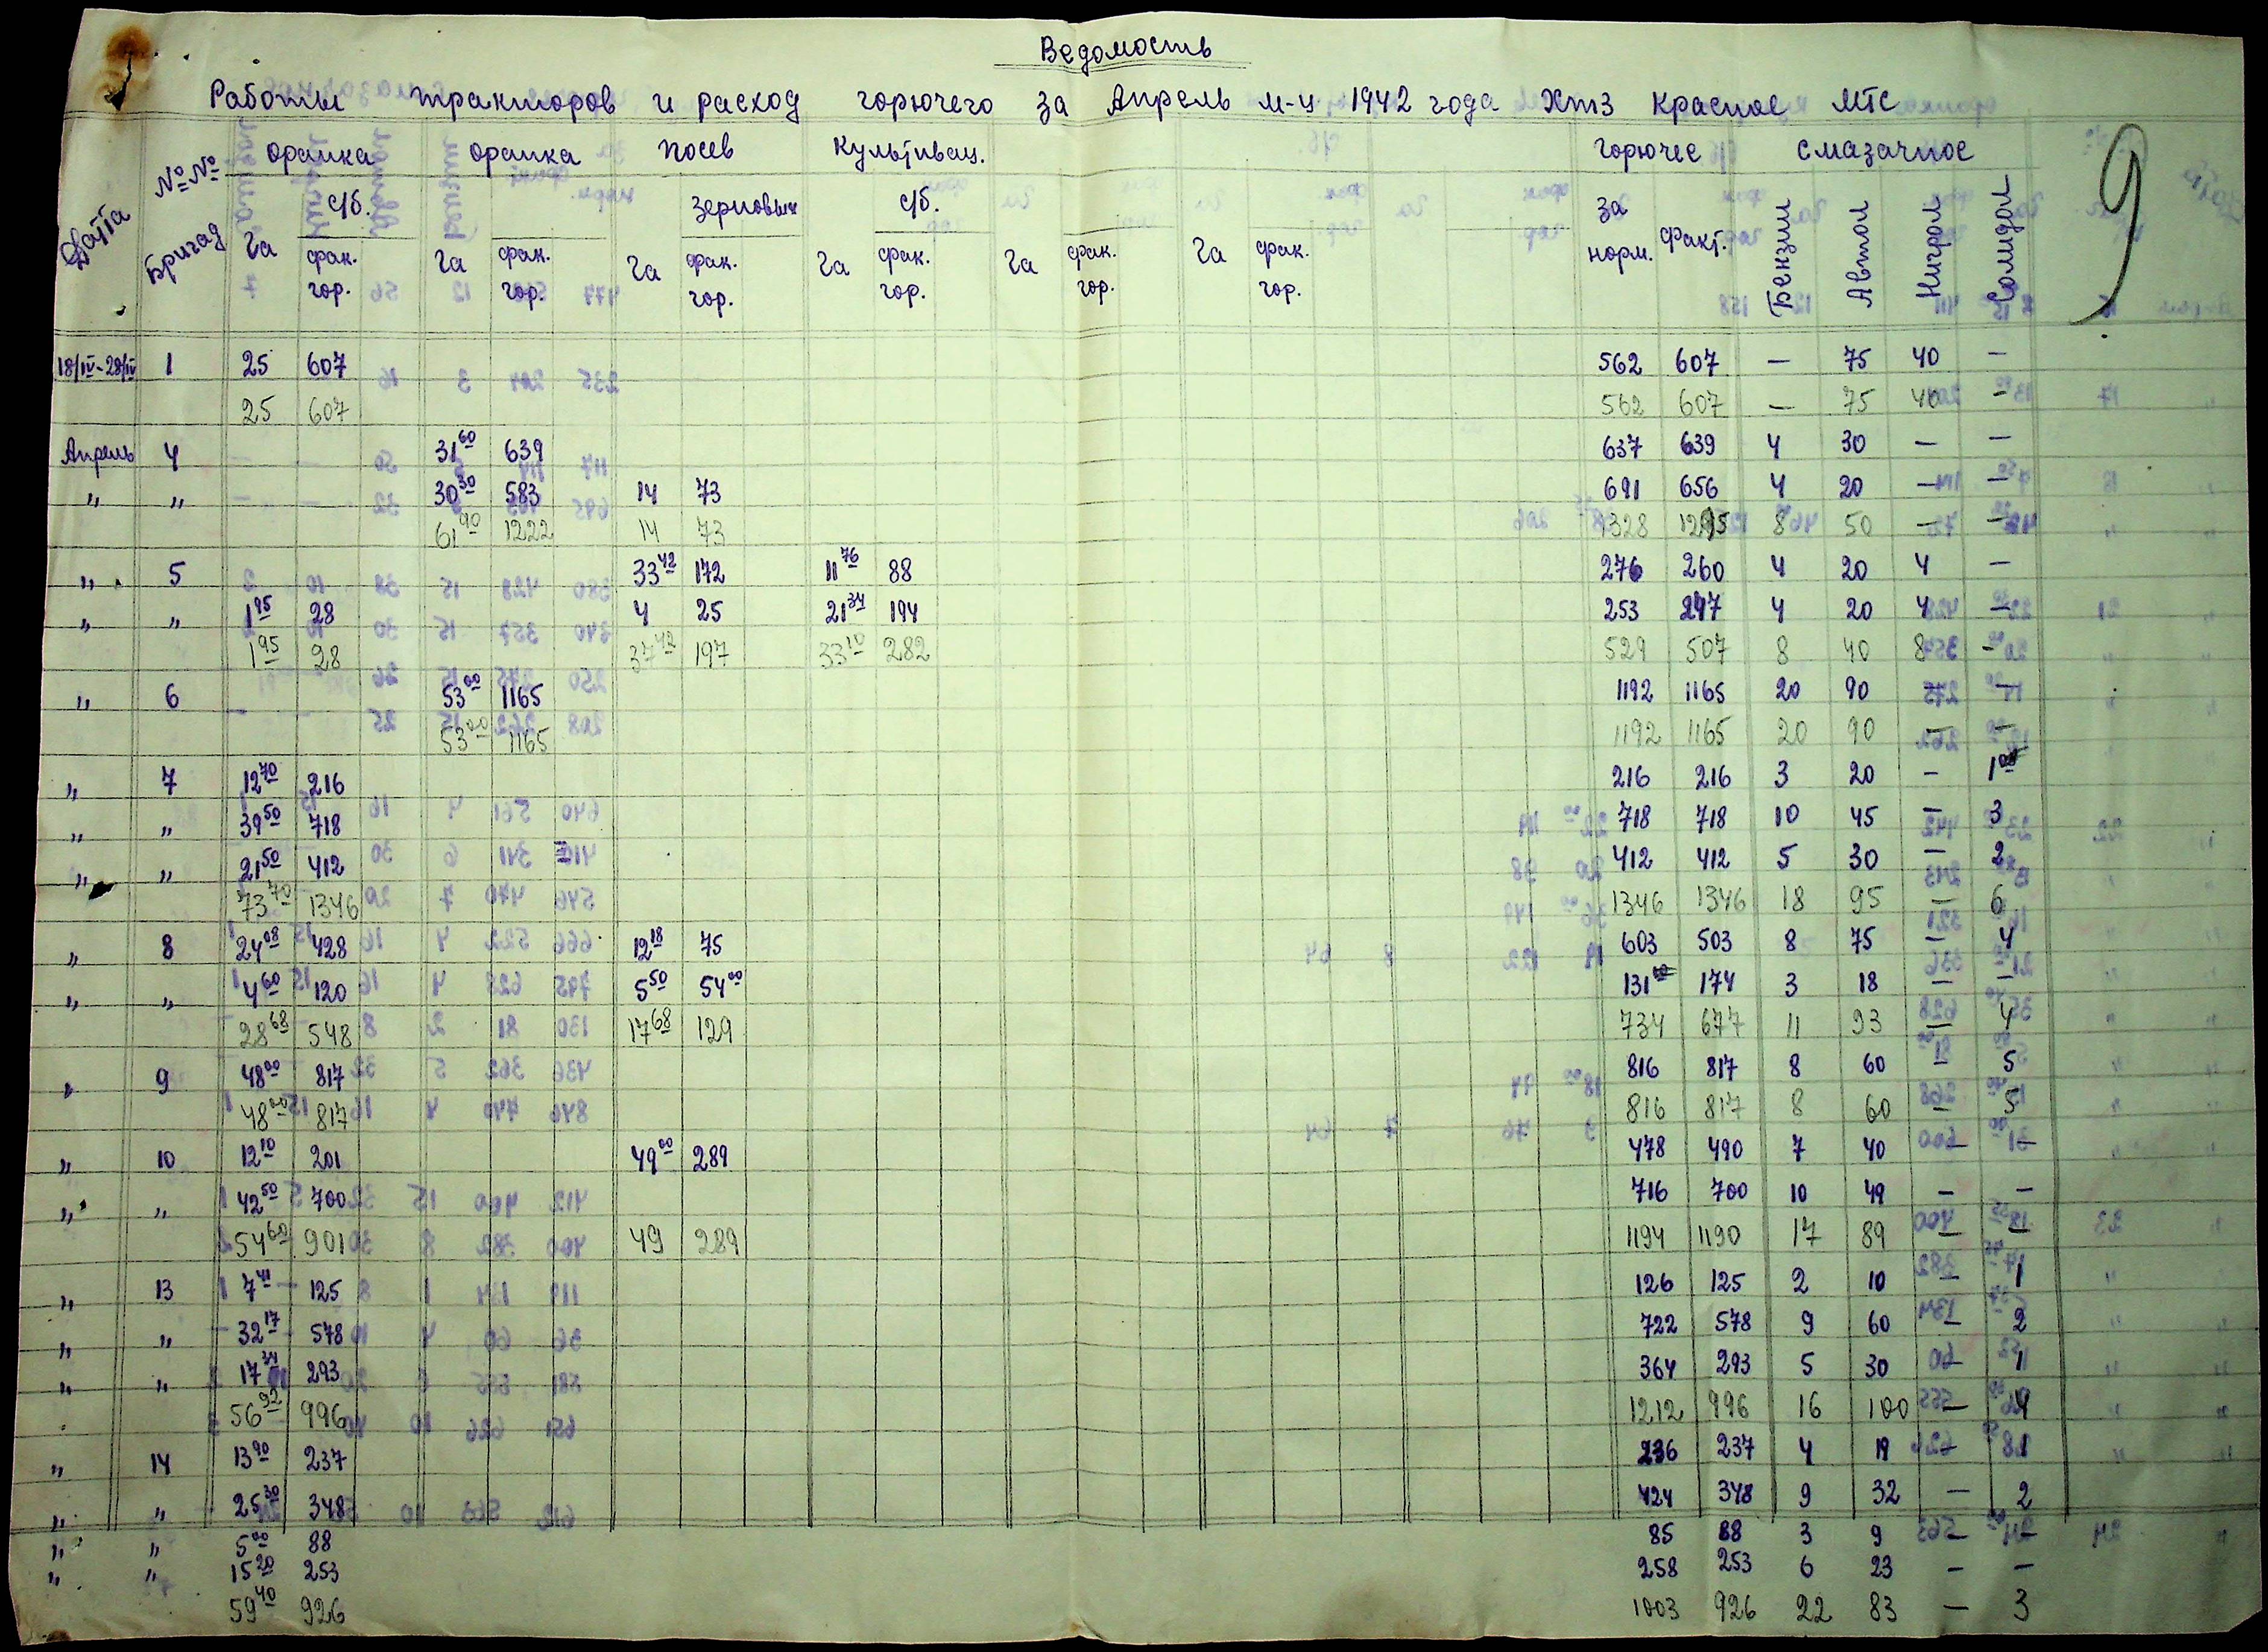 Ведомость
Работы тракторов и расход горючего за Апрель м-ц 1942 года Хтз Красное МТС
9
Датта №№ Бригад орапка орапка посев Культивац. горючее смазачное
с/б. зерновых с/б.
Га фак. гор. Га фак. гор. Га фак. гор. Га фак. гор. Га фак. гор. Га фак. гор. за норм. Факт. Бензин Автол Нигрол Солидол
18/IV-28/IV 1 25 607 562 607 — 75 40 —
25 607 562 607 — 75 40 —
Апрель 4 31⁶⁰ 639 637 639 4 30 — —
" " 30³⁰ 583 14 73 691 656 4 20 — —
61⁹⁰ 1222 14 73 1328 1295 8 50 — —
" 5 33⁴² 172 11⁷⁶ 88 276 260 4 20 4 —
" " 1⁹⁵ 28 4 25 21³⁴ 194 253 247 4 20 4 —
1⁹⁵ 28 37⁴² 197 33¹⁰ 282 529 507 8 40 8 —
" 6 53⁰⁰ 1165 1192 1165 20 90 — —
53⁰⁰ 1165 1192 1165 20 90 — —
" 7 12⁷⁰ 216 216 216 3 20 — 1⁰⁰
" " 39⁵⁰ 718 718 718 10 45 — 3
" " 21⁵⁰ 412 412 412 5 30 — 2
73⁷⁰ 1346 1346 1346 18 95 — 6
" 8 24⁰⁸ 428 12¹⁸ 75 603 503 8 75 — 4
" " 4⁶⁰ 120 5⁵⁰ 54⁰⁰ 131⁰⁰ 174 3 18 — —
28⁶⁸ 548 17⁶⁸ 129 734 677 11 93 — 4
" 9 48⁰⁰ 817 816 817 8 60 — 5
48⁰⁰ 817 816 817 8 60 — 5
" 10 12¹⁰ 201 49⁰⁰ 289 478 490 7 40 — —
" " 42⁵⁰ 700 716 700 10 49 — —
54⁶⁰ 901 49 289 1194 1190 17 89 — —
" 13 7⁴¹ 125 126 125 2 10 — 1
" " 32¹⁷ 578 722 578 9 60 — 2
" " 17³⁴ 293 364 293 5 30 — 1
56⁹² 996 1212 996 16 100 — 4
" 14 13⁹⁰ 237 236 237 4 19 — 1
" " 25³⁰ 348 424 348 9 32 — 2
" " 5⁰⁰ 88 85 88 3 9 — —
" " 15²⁰ 253 258 253 6 23 — —
59⁴⁰ 926 1003 926 22 83 — 3